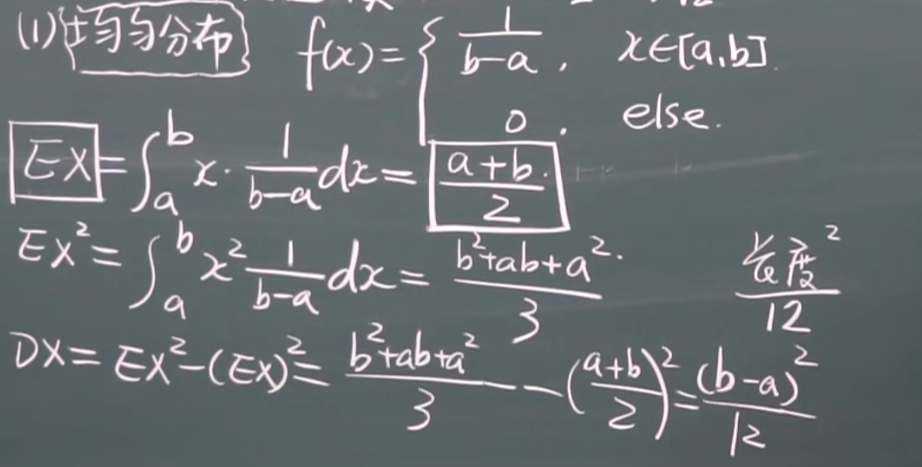 (1) 均匀分布 f(x) = { 1/(b-a), x∈[a,b]
0, else.
EX = ∫_a^b x · 1/(b-a) dx = (a+b)/2
EX² = ∫_a^b x² 1/(b-a) dx = (b²+ab+a²)/3
长度²/12
DX = EX² - (EX)² = (b²+ab+a²)/3 - ((a+b)/2)² = (b-a)²/12